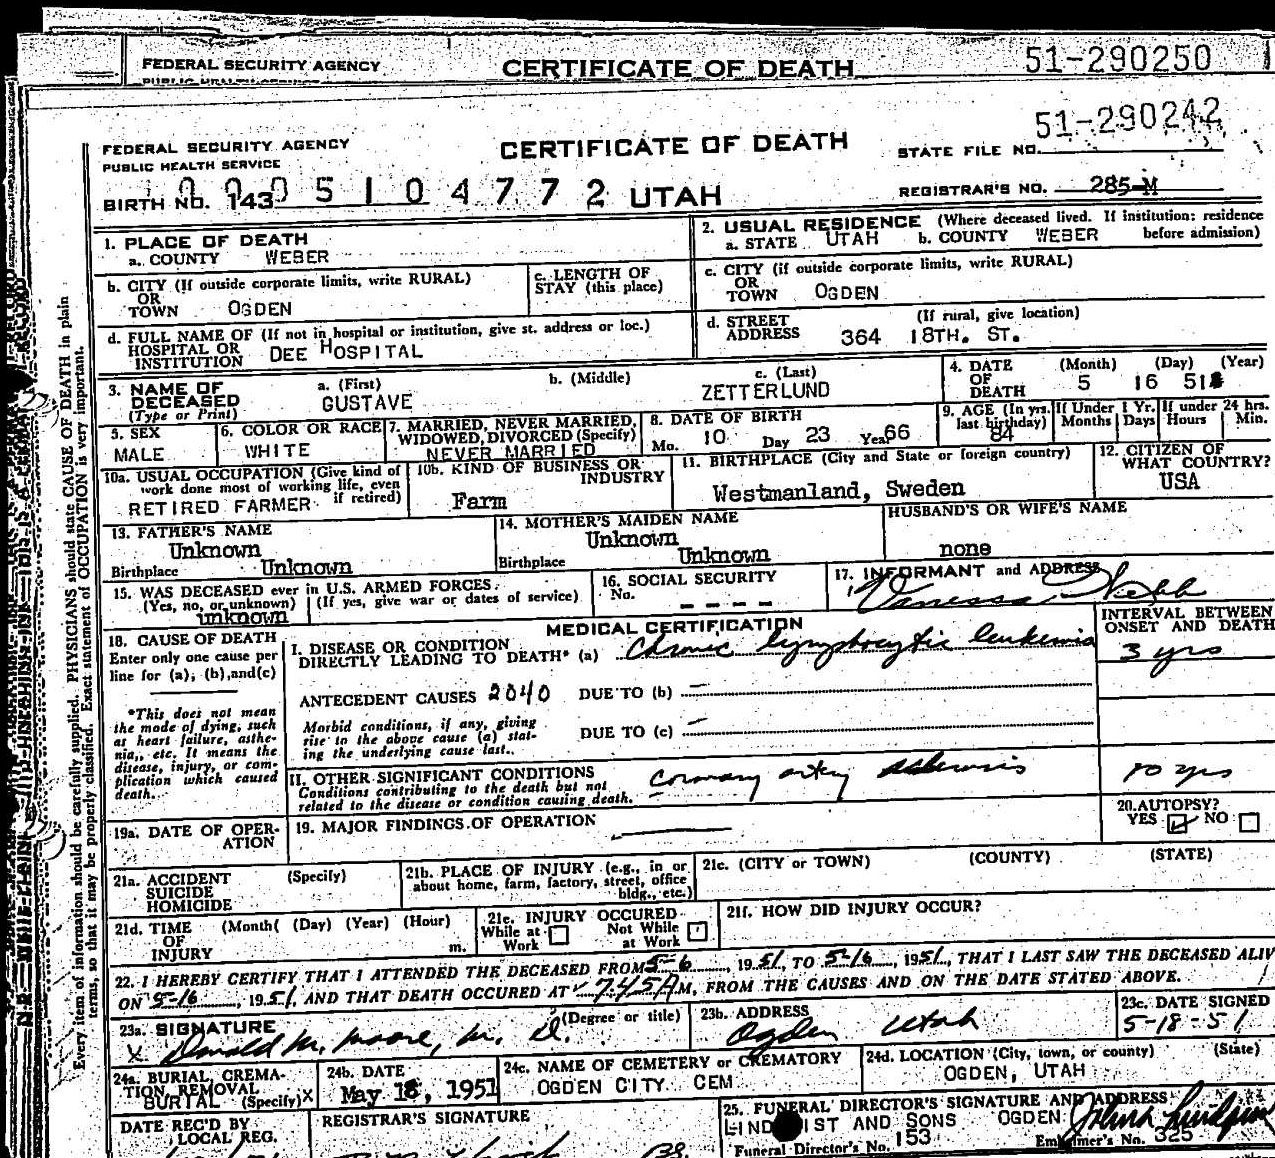 51-290250
FEDERAL SECURITY AGENCY CERTIFICATE OF DEATH
PUBLIC HEALTH SERVICE
51-290242
FEDERAL SECURITY AGENCY CERTIFICATE OF DEATH STATE FILE NO.
PUBLIC HEALTH SERVICE
BIRTH NO. 143 0 0 0 5 1 0 4 7 7 2 UTAH REGISTRAR'S NO. 285-M
1. PLACE OF DEATH
a. COUNTY WEBER
2. USUAL RESIDENCE (Where deceased lived. If institution: residence
a. STATE UTAH b. COUNTY WEBER before admission)
b. CITY (If outside corporate limits, write RURAL)
OR
TOWN OGDEN
c. LENGTH OF
STAY (this place)
c. CITY (If outside corporate limits, write RURAL)
OR
TOWN OGDEN
d. FULL NAME OF (If not in hospital or institution, give st. address or loc.)
HOSPITAL OR
INSTITUTION DEE HOSPITAL
d. STREET (If rural, give location)
ADDRESS 364 18TH. ST.
3. NAME OF
DECEASED
(Type or Print)
a. (First) b. (Middle) c. (Last)
GUSTAVE ZETTERLUND
4. DATE
OF
DEATH
(Month) (Day) (Year)
5 16 51
5. SEX
MALE
6. COLOR OR RACE
WHITE
7. MARRIED, NEVER MARRIED,
WIDOWED, DIVORCED (Specify)
NEVER MARRIED
8. DATE OF BIRTH
Mo. 10 Day 23 Year 66
9. AGE (In yrs.
last birthday)
84
If Under 1 Yr.
Months Days
If under 24 hrs.
Hours Min.
10a. USUAL OCCUPATION (Give kind of
work done most of working life, even
if retired)
RETIRED FARMER
10b. KIND OF BUSINESS OR
INDUSTRY
Farm
11. BIRTHPLACE (City and State or foreign country)
Westmanland, Sweden
12. CITIZEN OF
WHAT COUNTRY?
USA
13. FATHER'S NAME
Unknown
Birthplace Unknown
14. MOTHER'S MAIDEN NAME
Unknown
Birthplace Unknown
HUSBAND'S OR WIFE'S NAME
none
15. WAS DECEASED ever in U.S. ARMED FORCES.
(Yes, no, or unknown) (If yes, give war or dates of service)
unknown
16. SOCIAL SECURITY
No. ----
17. INFORMANT and ADDRESS
Vanessa Webb
MEDICAL CERTIFICATION
18. CAUSE OF DEATH
Enter only one cause per
line for (a), (b), and (c)
*This does not mean
the mode of dying, such
as heart failure, asthe-
nia, etc. It means the
disease, injury, or com-
plication which caused
death.
I. DISEASE OR CONDITION
DIRECTLY LEADING TO DEATH* (a) Chronic lymphocytic leukemia
INTERVAL BETWEEN
ONSET AND DEATH
3 yrs
ANTECEDENT CAUSES 2040 DUE TO (b) —
Morbid conditions, if any, giving
rise to the above cause (a) stat-
ing the underlying cause last.
DUE TO (c) —
II. OTHER SIGNIFICANT CONDITIONS
Conditions contributing to the death but not
related to the disease or condition causing death.
Coronary artery sclerosis 10 yrs
19a. DATE OF OPER-
ATION
19. MAJOR FINDINGS OF OPERATION —
20. AUTOPSY?
YES NO
21a. ACCIDENT (Specify)
SUICIDE
HOMICIDE
21b. PLACE OF INJURY (e.g., in or
about home, farm, factory, street, office
bldg., etc.)
21c. (CITY or TOWN) (COUNTY) (STATE)
21d. TIME (Month( (Day) (Year) (Hour)
OF
INJURY m.
21e. INJURY OCCURED
While at Not While
Work at Work
21f. HOW DID INJURY OCCUR?
22. I HEREBY CERTIFY THAT I ATTENDED THE DECEASED FROM 5-6, 1951, TO 5-16, 1951, THAT I LAST SAW THE DECEASED ALIV
ON 5-16, 1951, AND THAT DEATH OCCURED AT 745A M, FROM THE CAUSES AND ON THE DATE STATED ABOVE.
23a. SIGNATURE (Degree or title)
X Donald M. Moore, M. D.
23b. ADDRESS
Ogden Utah
23c. DATE SIGNED
5-18-51
24a. BURIAL, CREMA-
TION, REMOVAL
BURIAL (Specify) X
24b. DATE
May 18, 1951
24c. NAME OF CEMETERY or CREMATORY
OGDEN CITY CEM
24d. LOCATION (City, town, or county) (State)
OGDEN, UTAH
DATE REC'D BY
LOCAL REG.
REGISTRAR'S SIGNATURE
25. FUNERAL DIRECTOR'S SIGNATURE AND ADDRESS
LIND IST AND SONS OGDEN
Funeral Director's No. 153 Embalmer's No. 325
Every item of information should be carefully supplied. PHYSICIANS should state CAUSE OF DEATH in plain
terms, so that it may be properly classified. Exact statement of OCCUPATION is very important.